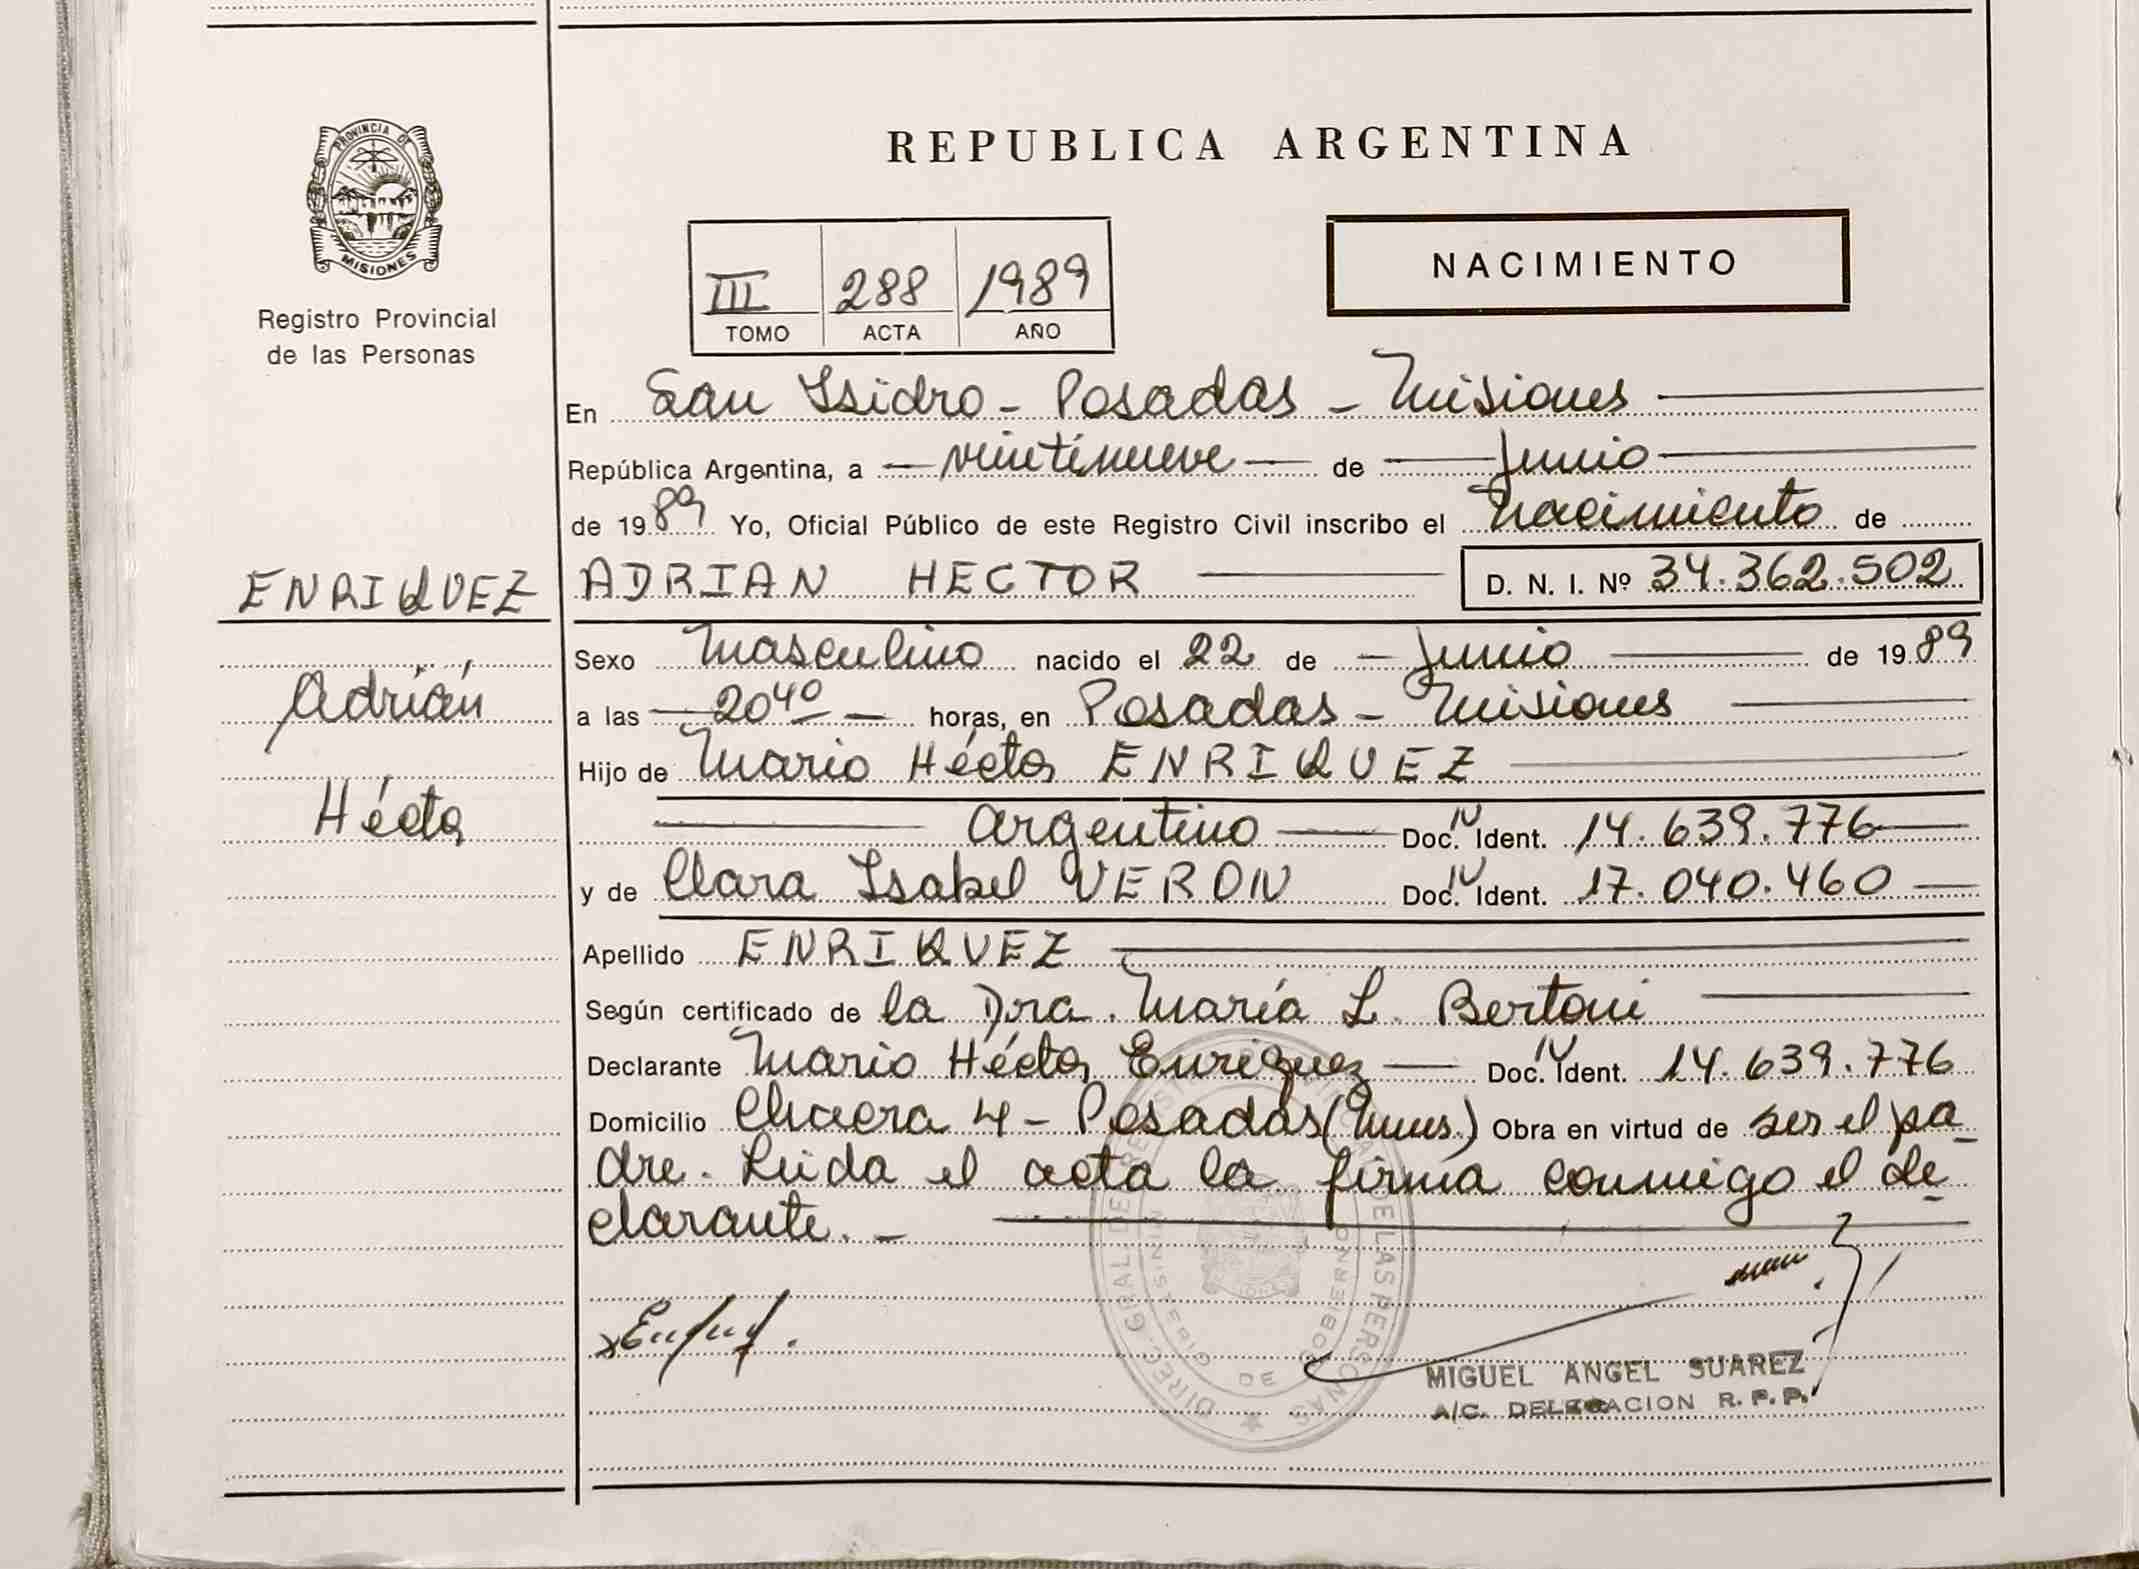 PROVINCIA DE
MISIONES
Registro Provincial
de las Personas
REPUBLICA ARGENTINA
NACIMIENTO
III 288 1989
TOMO ACTA AÑO
En San Isidro - Posadas - Misiones
República Argentina, a veintinueve de Junio
de 1989 Yo, Oficial Público de este Registro Civil inscribo el nacimiento de
ENRIQUEZ ADRIAN HECTOR D. N. I. Nº 34.362.502
Sexo Masculino nacido el 22 de Junio de 1989
Adrián a las 20 40 horas, en Posadas - Misiones
Hijo de Mario Héctor ENRIQUEZ
Héctor argentino Doc. N Ident. 14.639.776
y de Clara Isabel VERON Doc. N Ident. 17.040.460
Apellido ENRIQUEZ
Según certificado de la Dra. María L. Bertoni
Declarante Mario Héctor Enriquez Doc. N Ident. 14.639.776
Domicilio Chacra 4 - Posadas (Mnes.) Obra en virtud de ser el pa-
dre. Leida el acta la firma conmigo el de-
clarante. -
MIGUEL ANGEL SUAREZ
A/C. DELEGACION R. P. P.